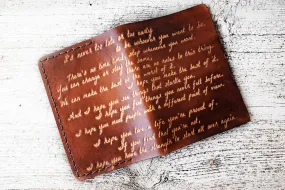 It's never too late or too early
to be whoever you want to be.
There's no time limit, stop whenever you want.
You can change or stay the same,
there are no rules to this thing.
We can make the best or the worst of it.
And I hope you make the best of it.
I hope you see things that startle you,
I hope you feel things you never felt before,
I hope you meet people with a different point of view.
I hope you live a life you're proud of.
If you find that you're not,
I hope you have the strength to start all over again.